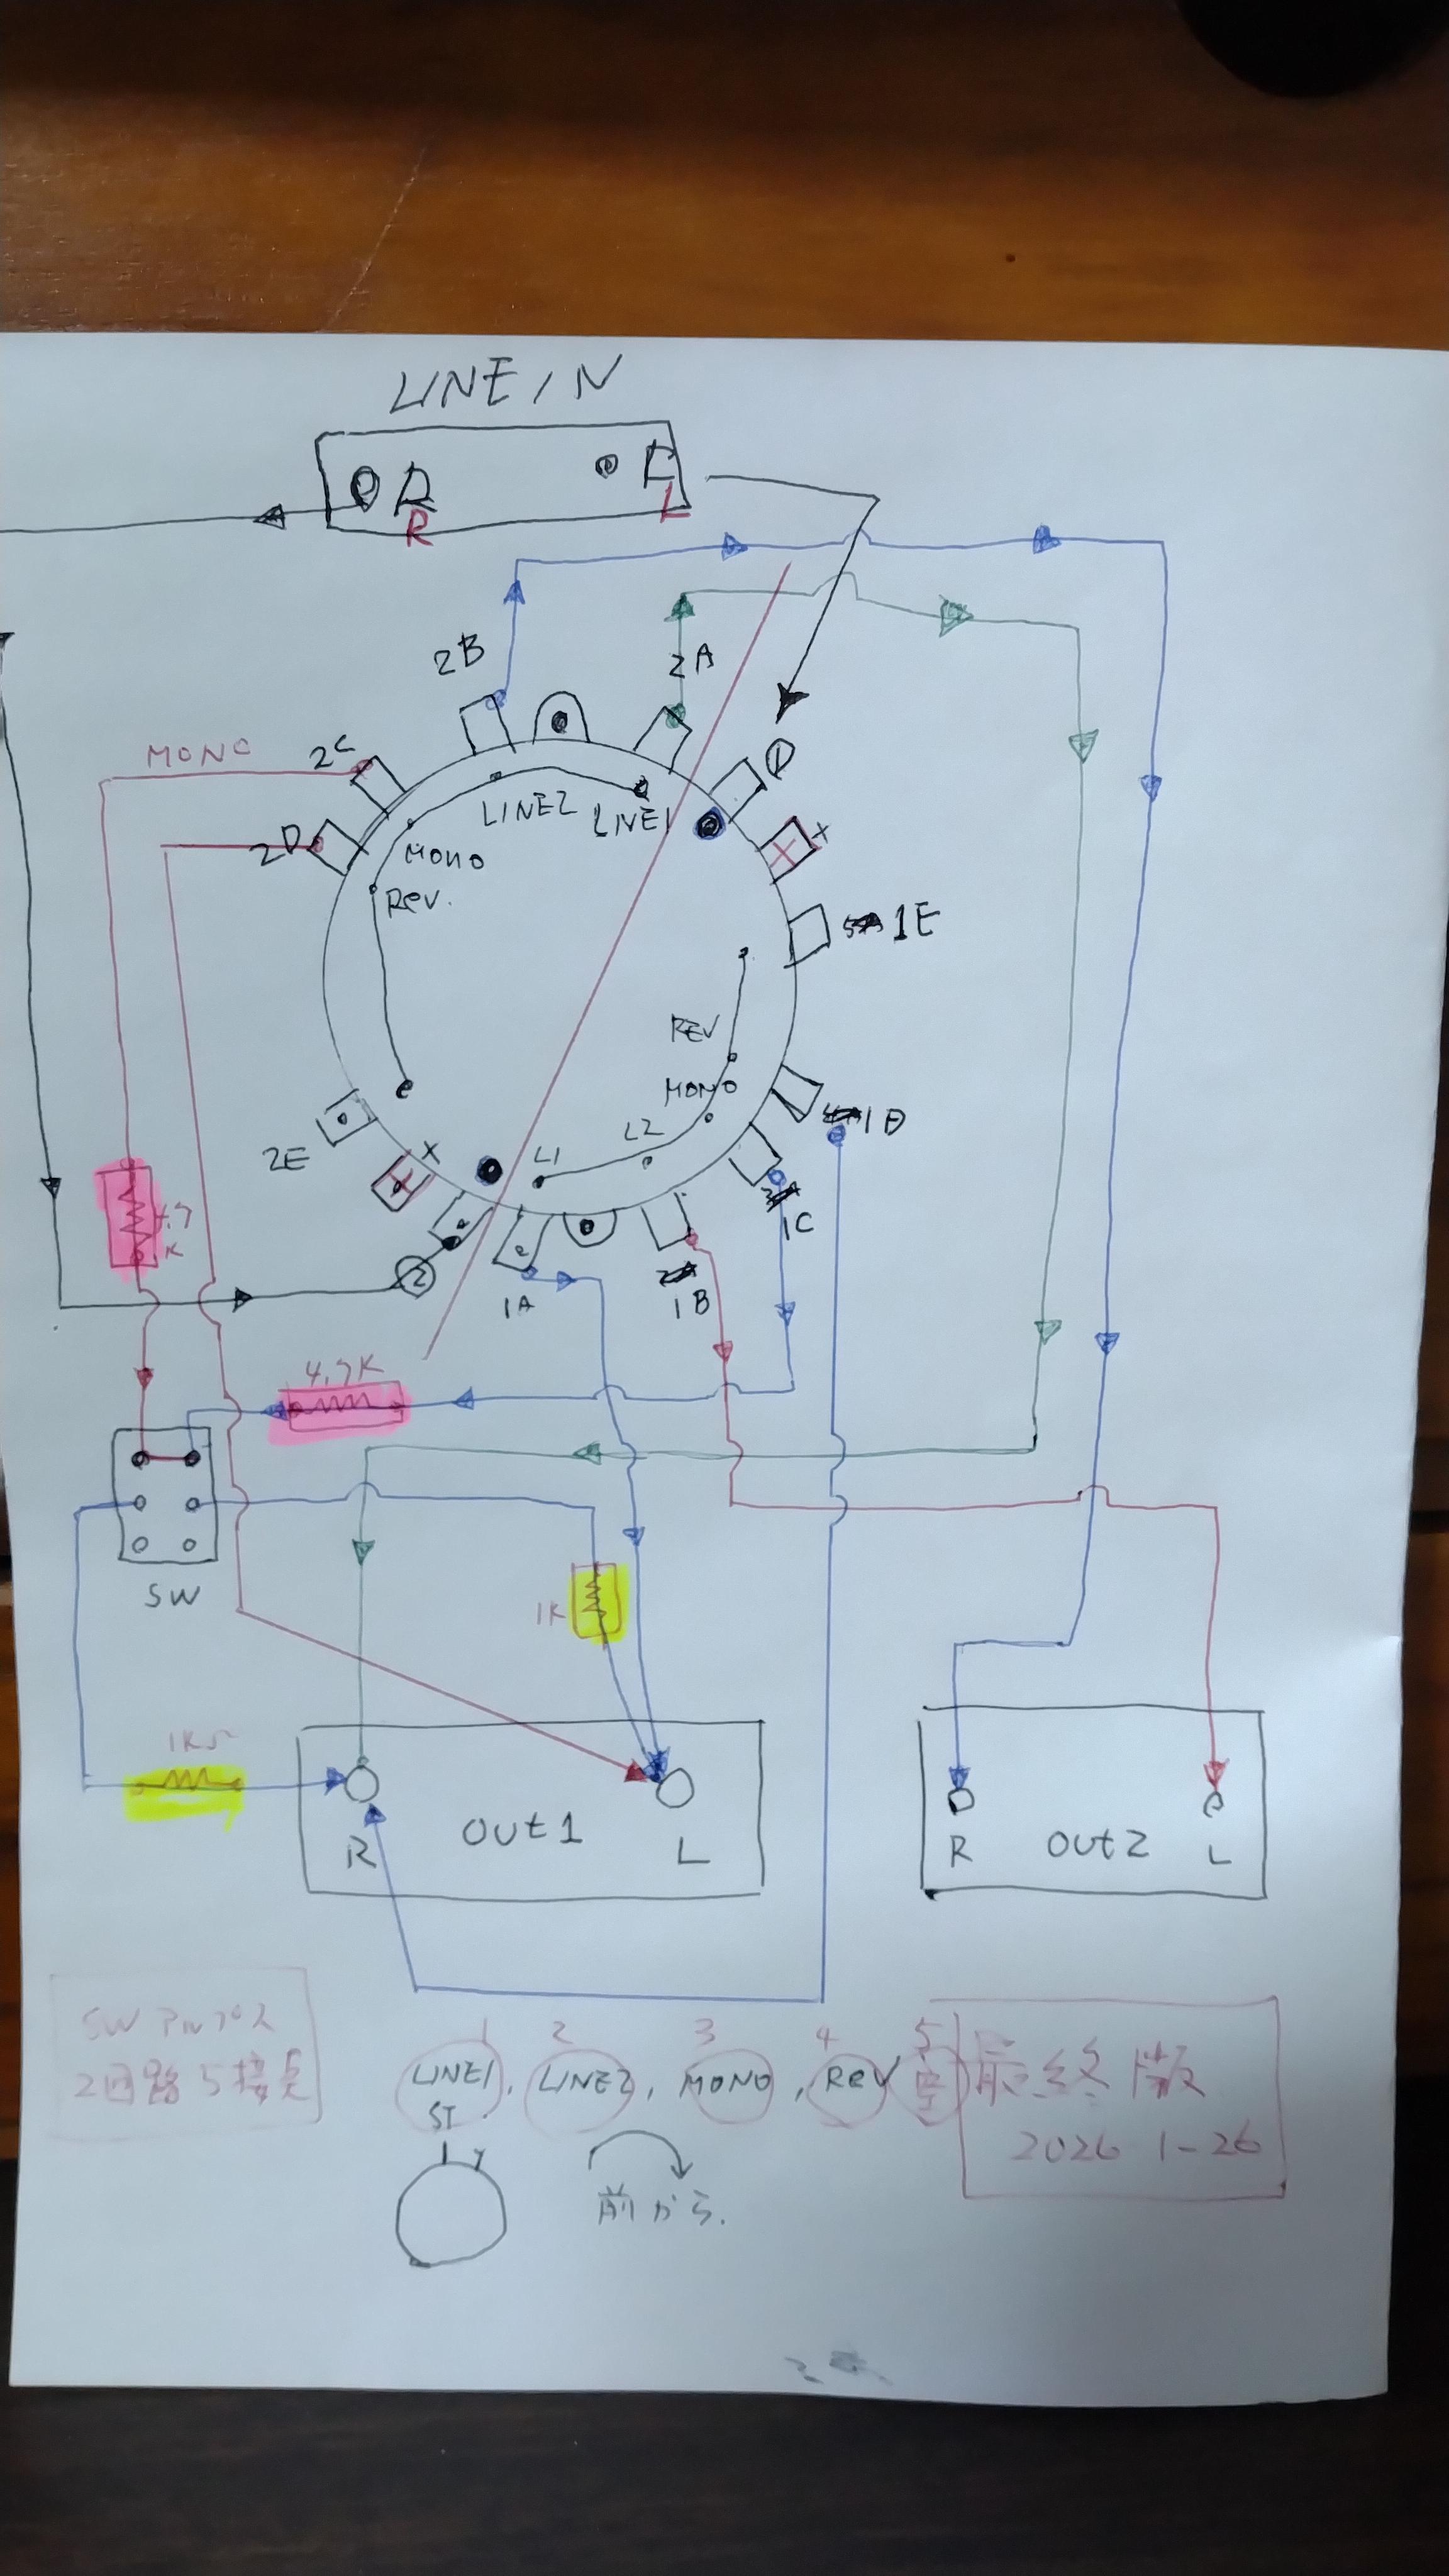 LINE IN
R
R
L
L
2B
2A
MONO
2C
2D
①
X
LINE2
LINE1
MONO
REV.
1E
REV
MONO
1D
L2
L1
2E
X
1C
②
1A
1B
4.7
K
4.7K
SW
1K
1KΩ
R
OUT1
L
R
OUT2
L
2回路5接点
1 2 3 4 5
LINE1, LINE2, MONO, REV 空
ST
最終版
2026 1-26
前から.